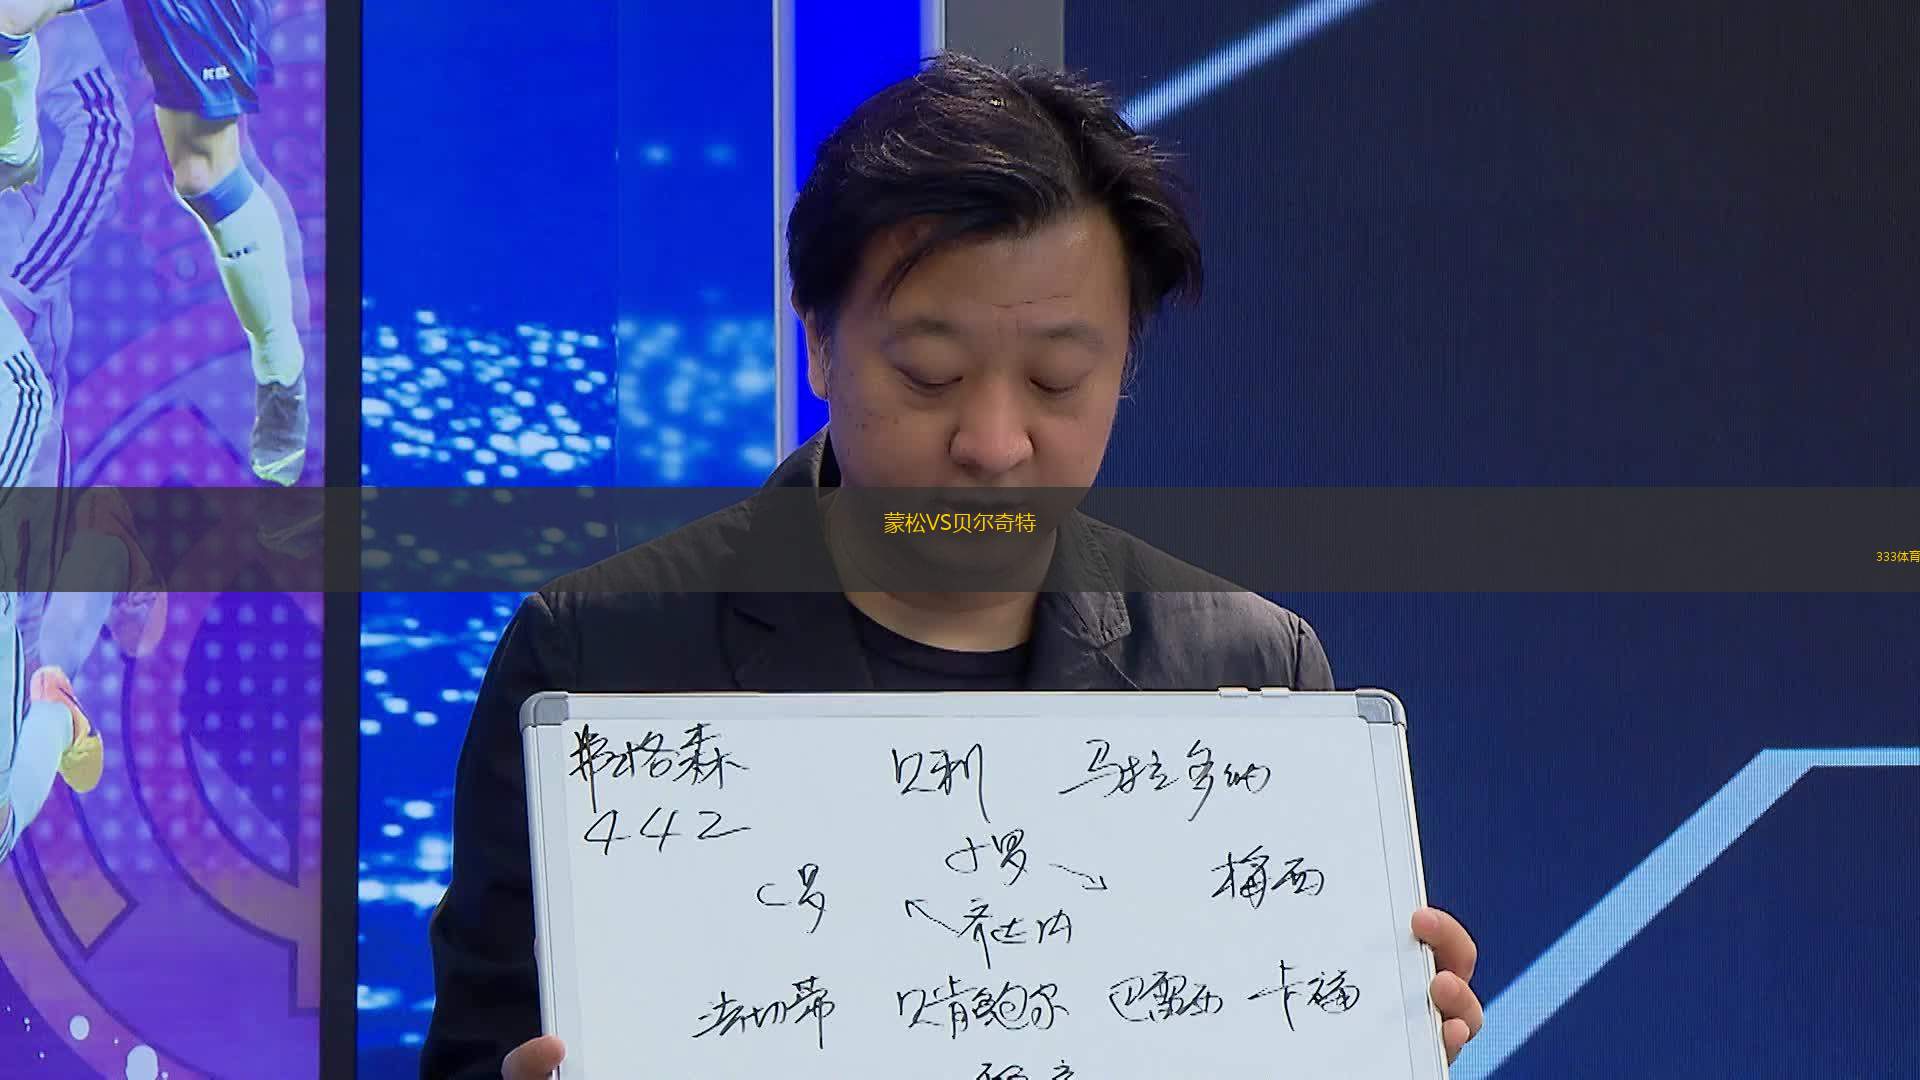 蒙松VS贝尔奇特
333体育
弗格森 贝利 马拉多纳
442
小罗
C罗 梅西
齐达内
法切蒂 贝肯鲍尔 巴雷西 卡福